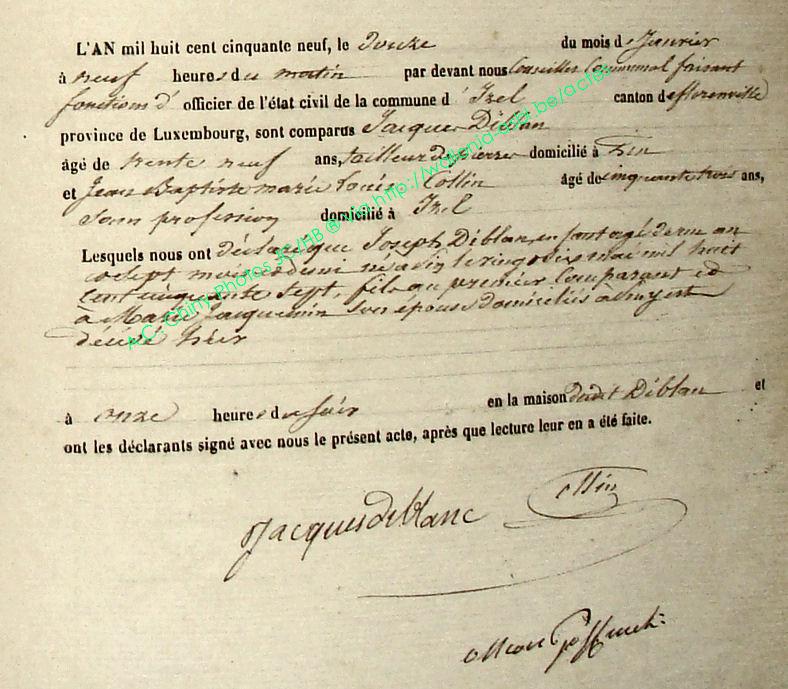 L'AN mil huit cent cinquante neuf, le douze du mois de Janvier
à neuf heures du matin par devant nous Conseiller Communal faisant
fonctions d' officier de l'état civil de la commune d' Izel canton de florenville
province de Luxembourg, sont comparus Jacques Diblan
âgé de trente neuf ans, tailleur de pierre domicilié à Pin
et Jean Baptiste marie louis Collin âgé de cinquante trois ans,
Sans profession domicilié à Izel
Lesquels nous ont déclaré que Joseph Diblan, enfant agé de un an
sept mois et demi né à Pin le mai mil huit
cent cinquante sept, fils du premier Comparant et
à Marie Jacquemin son épouse domiciliés à est
décédé hier
à onze heures du soir en la maison dudit Diblan et
ont les déclarants signé avec nous le présent acte, après que lecture leur en a été faite.
Jacques diblanc Collin